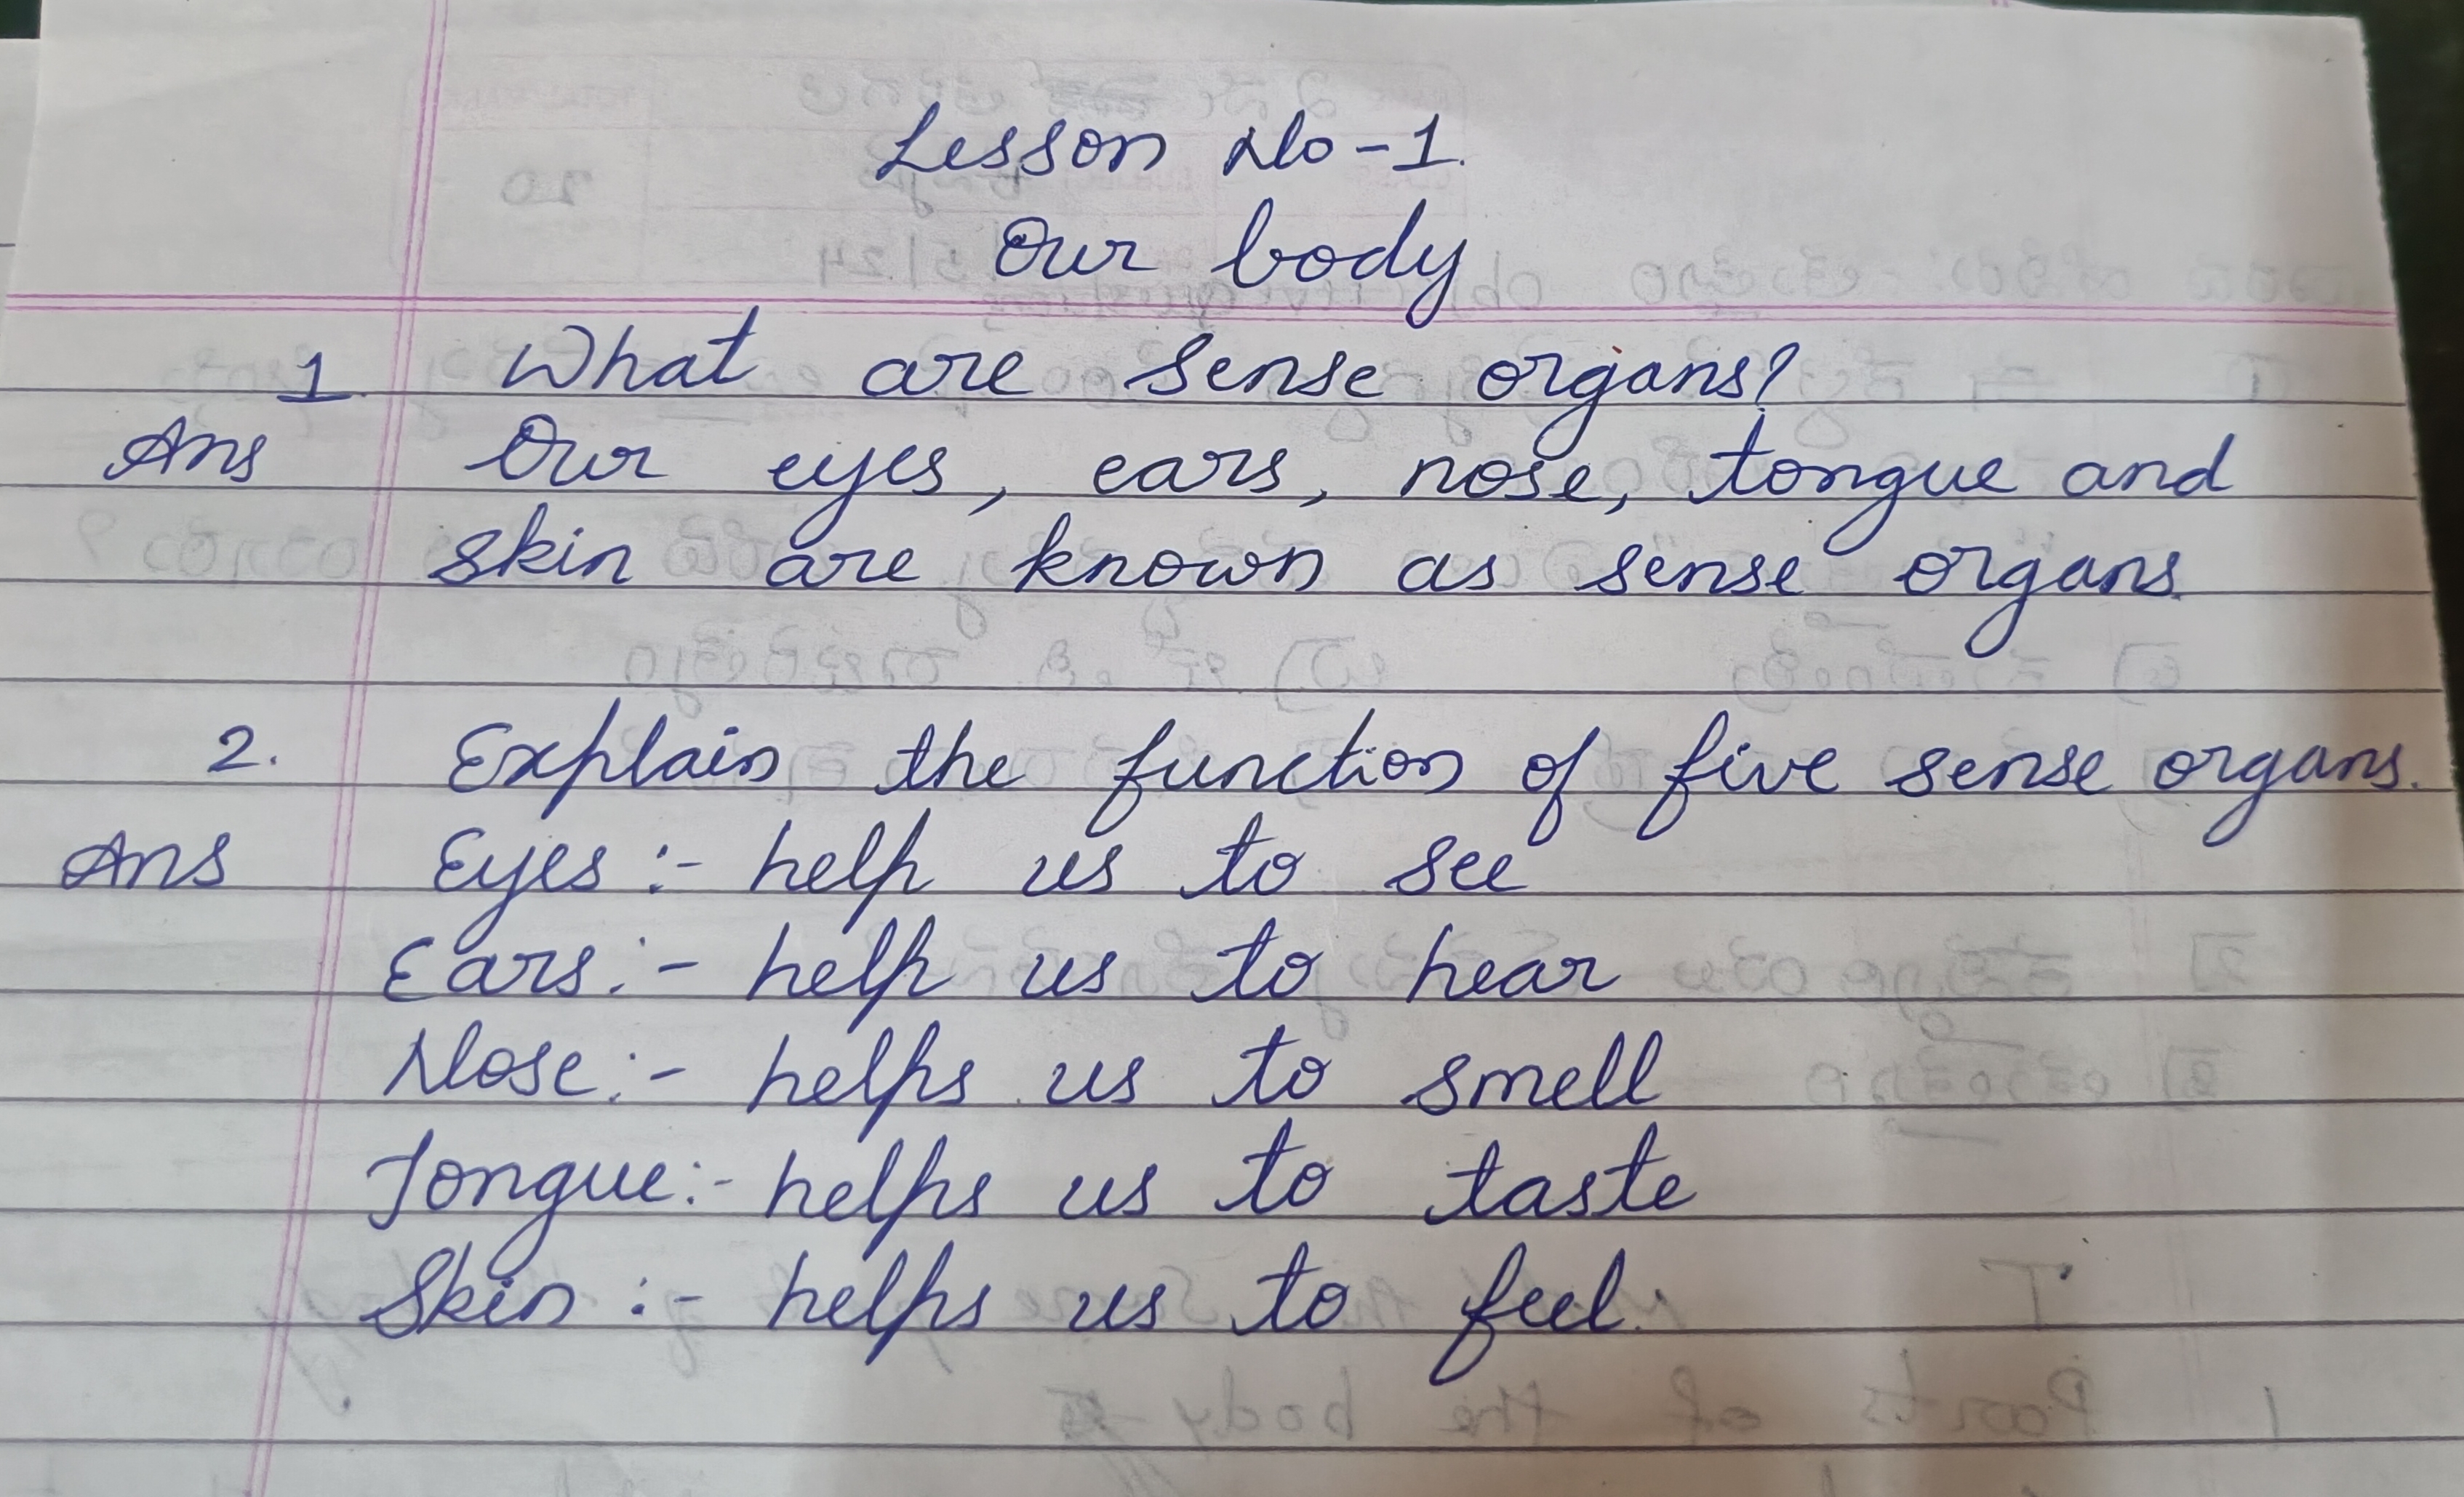 Lesson No-1.
Our body
1 What are sense organs?
Ans Our eyes, ears, nose, tongue and
skin are known as sense organs.
2. Explain the function of five sense organs.
Ans Eyes :- help us to see
Ears :- help us to hear
Nose :- helps us to smell
Tongue :- helps us to taste
Skin :- helps us to feel.